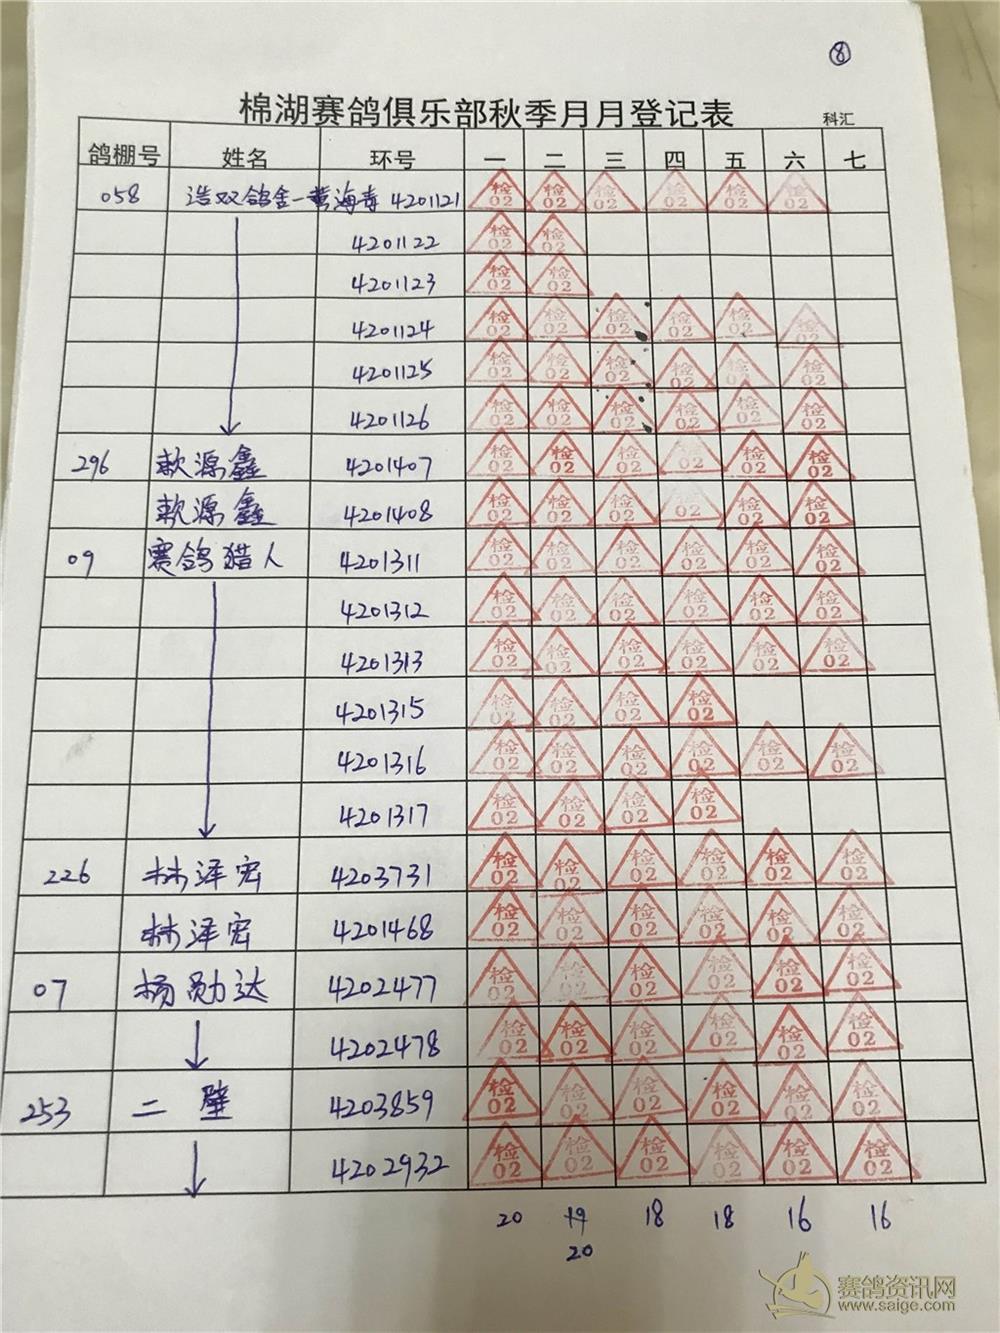 ⑧
棉湖赛鸽俱乐部秋季月月登记表 科汇
鸽棚号 姓名 环号 一 二 三 四 五 六 七
058 浩双鸽舍-黄海青 4201121 检02 检02 检02 检02 检02 检02
4201122 检02 检02
4201123 检02 检02
4201124 检02 检02 检02 检02 检02 检02
4201125 检02 检02 检02 检02 检02 检02
4201126 检02 检02 检02 检02 检02 检02
296 源鑫 4201407 检02 检02 检02 检02 检02 检02
源鑫 4201408 检02 检02 检02 检02 检02 检02
09 赛鸽猎人 4201311 检02 检02 检02 检02 检02 检02
4201312 检02 检02 检02 检02 检02 检02
4201313 检02 检02 检02 检02 检02 检02
4201315 检02 检02 检02 检02
4201316 检02 检02 检02 检02 检02 检02
4201317 检02 检02 检02 检02
226 林泽宏 4203731 检02 检02 检02 检02 检02 检02
林泽宏 4201468 检02 检02 检02 检02 检02 检02
07 杨勋达 4202477 检02 检02 检02 检02 检02 检02
4202478 检02 检02 检02 检02 检02 检02
253 二壁 4203859 检02 检02 检02 检02 检02 检02
4202932 检02 检02 检02 检02 检02 检02
20 19 18 18 16 16
20
赛鸽资讯网
www.saige.com